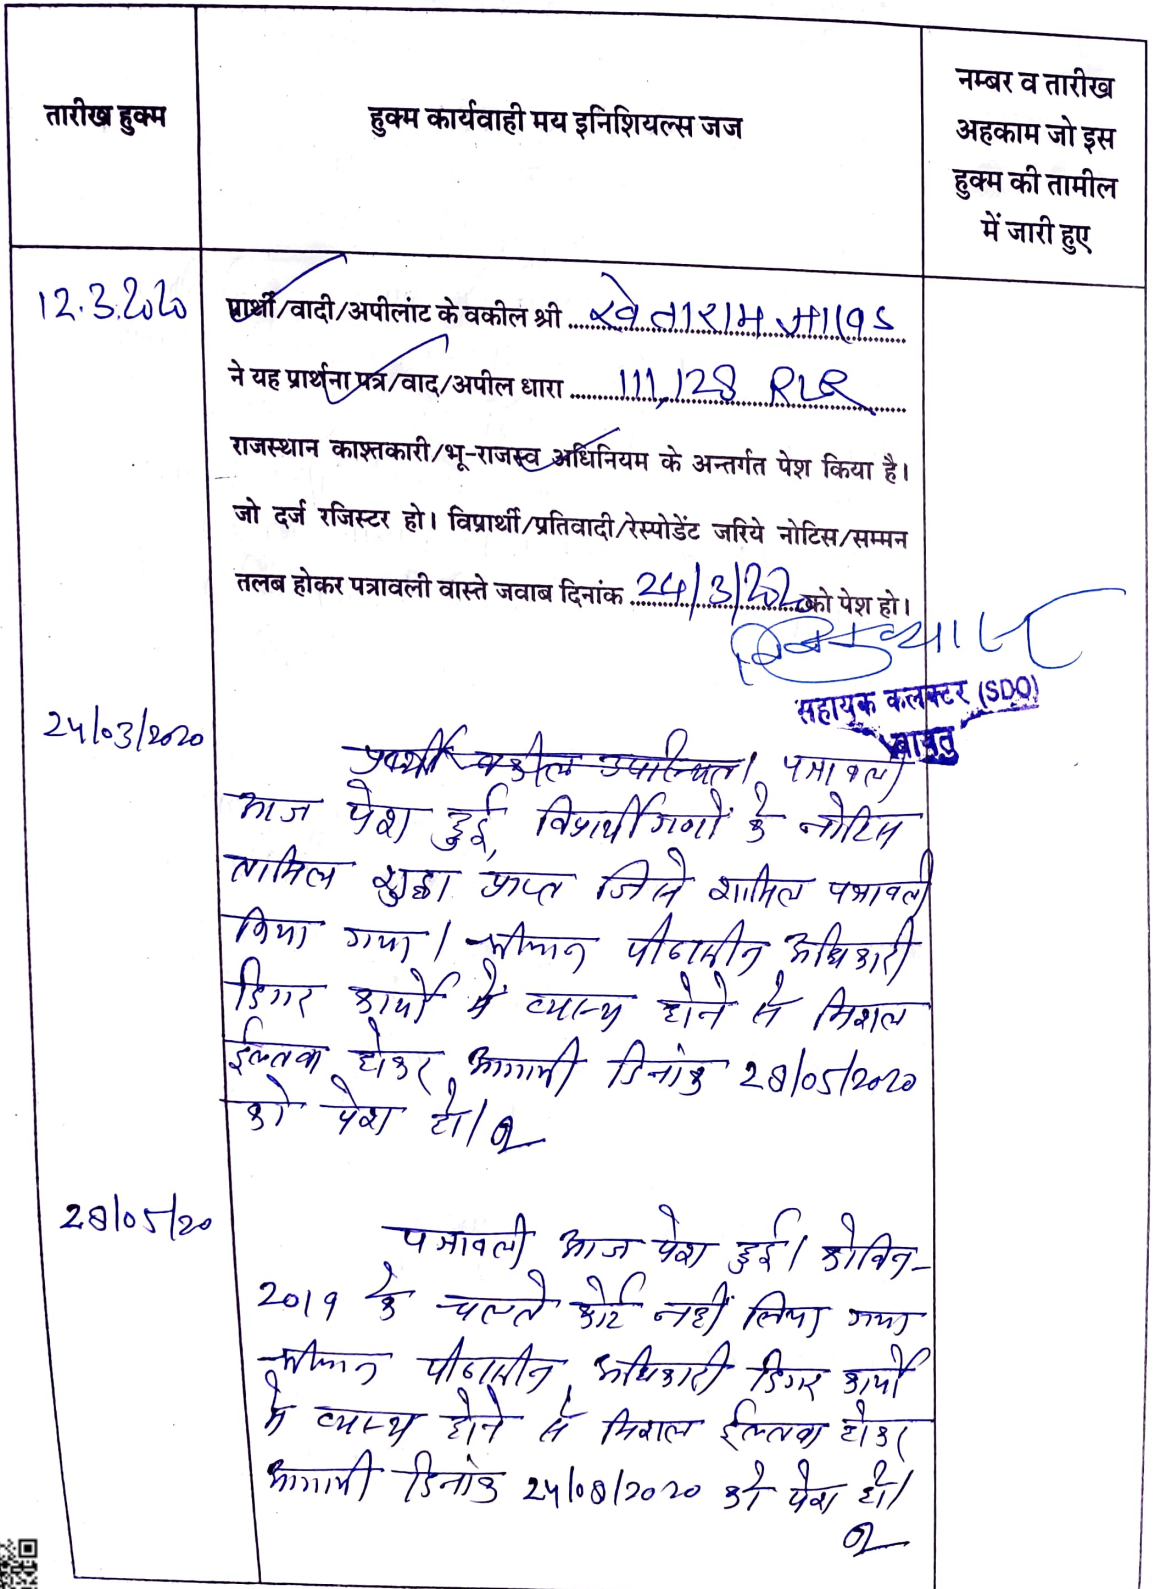 तारीख हुक्म
हुक्म कार्यवाही मय इनिशियल्स जज
नम्बर व तारीख
अहकाम जो इस
हुक्म की तामील
में जारी हुए
12.3.2020
प्रार्थी/वादी/अपीलांट के वकील श्री खेताराम
ने यह प्रार्थना पत्र/वाद/अपील धारा 111,128 RLR
राजस्थान काश्तकारी/भू-राजस्व अधिनियम के अन्तर्गत पेश किया है।
जो दर्ज रजिस्टर हो। विप्रार्थी/प्रतिवादी/रेस्पोडेंट जरिये नोटिस/सम्मन
तलब होकर पत्रावली वास्ते जवाब दिनांक 24/3/2020 को पेश हो।
सहायक कलक्टर (SDO)
बायतु
24/03/2020
प्रार्थी वकील उपस्थित। पत्रावली
आज पेश हुई, विप्रार्थीगणों के नोटिस
तामिल शुद्धा प्राप्त जिसे शामिल पत्रावली
किया गया। श्रीमान पीठासीन अधिकारी
डिगर कार्यो में व्यास्थ होने से मिशल
ईल्तवा होकर आगामी दिनांक 28/05/2020
को पेश हो।
28/05/20
पत्रावली आज पेश हुई। कोविन-
2019 के चलते कोर्ट नहीं लिया गया
श्रीमान पीठासीन अधिकारी डिगर कार्यो
मे व्यास्थ होने से मिशल ईल्तवा होकर
आगामी दिनांक 24/08/2020 को पेश हो।